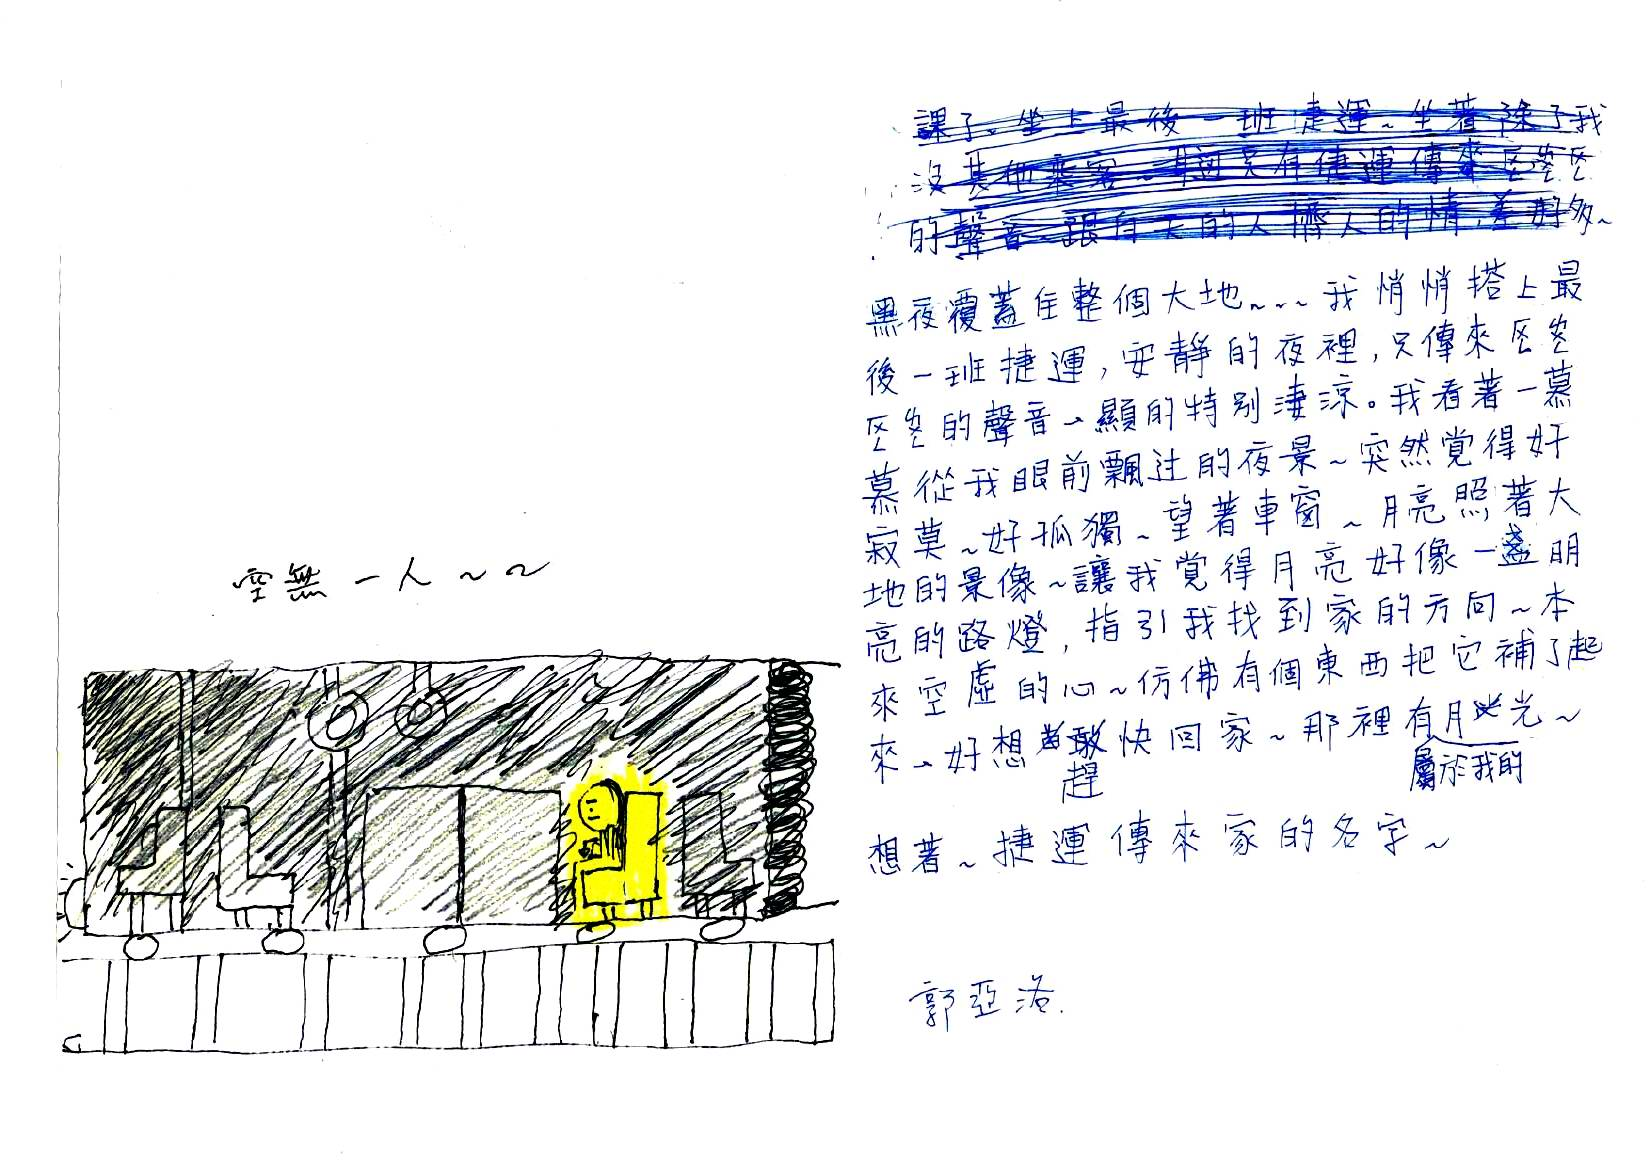 空無一人~~
課了。坐上最後一班捷運~坐著除了我
沒其他乘客~只有捷運傳來ㄎㄨㄤㄎ
的聲音~跟白天的人擠人的情,差好多~
黑夜覆蓋住整個大地~~~我悄悄搭上最
後一班捷運,安靜的夜裡,只傳來
的聲音、顯的特別淒涼。我看著一慕
慕從我眼前飄过的夜景~突然覺得好
寂莫~好孤獨~望著車窗~月亮照著大
地的景像~讓我覺得月亮好像一盞明
亮的路燈,指引我找到家的方向~本
來空虛的心~仿佛有個東西把它補了起
來、好想趕快回家~那裡有屬於我的月光~
想著~捷運傳來家的名字~
郭亞洛.